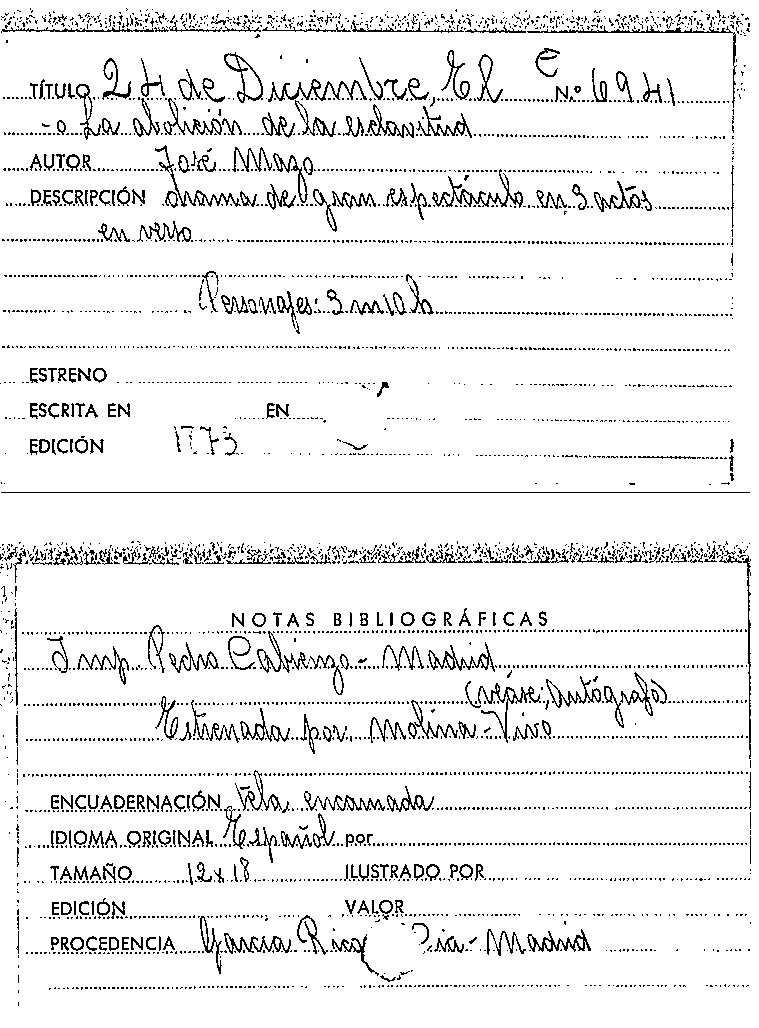 TÍTULO 24 de Diciembre, El e N.º 6941
- o La abolición de la esclavitud
AUTOR José Mazo
DESCRIPCIÓN drama de gran espectáculo en 3 actos
en verso
Personajes: 3 m 10 h
ESTRENO
ESCRITA EN EN
EDICIÓN 1773
NOTAS BIBLIOGRÁFICAS
Imp. Pedro Cabienzo - Madrid
(véase; Autógrafo)
Estrenada por: Molina - Vivo
ENCUADERNACIÓN tela encarnada
IDIOMA ORIGINAL Español por
TAMAÑO 12 x 18 ILUSTRADO POR
EDICIÓN VALOR
PROCEDENCIA García Rico Cia - Madrid